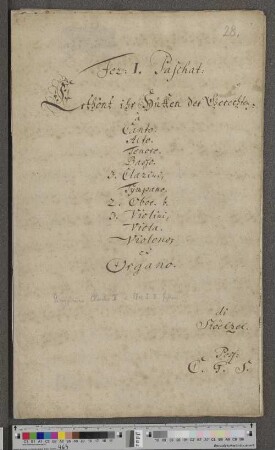 28.
Fer. I. Paschat.
Erthönt ihr Hütten der Gerechten,
à
Canto.
Alto.
Tenore.
Basso.
3. Clarini,
Tympano.
2. Oboe.
3. Violini,
Viola.
Violono,
ed
Organo.
di
Stöltzel.
Poss.
C. T. S.